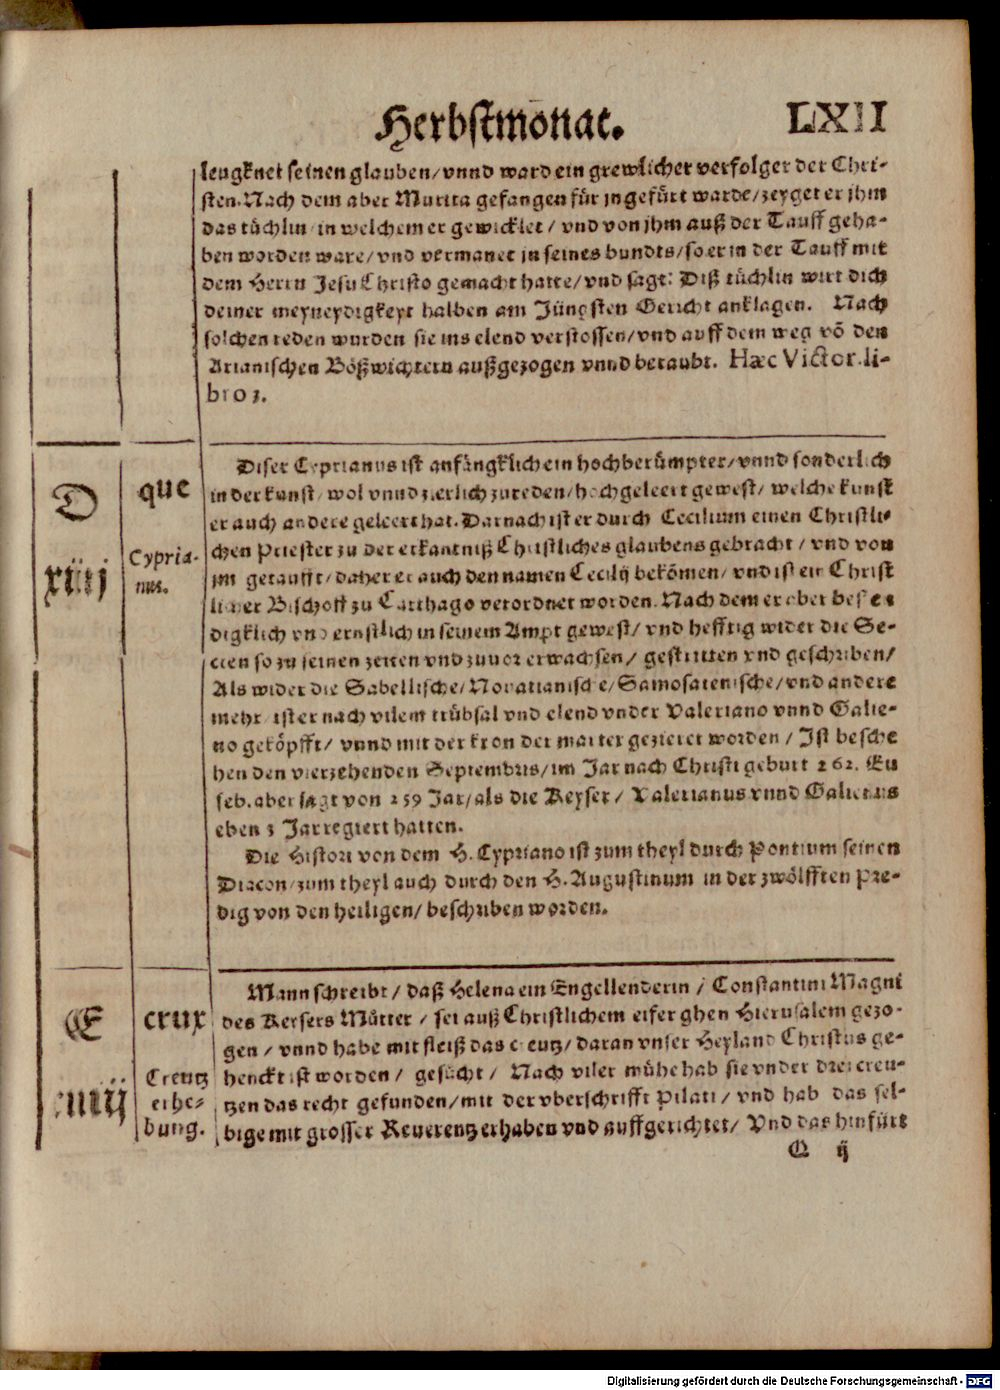 Herbstmonat. LXII
leugknet seinen glauben/vnnd ward ein grewlicher verfolger der Chri-
sten. Nach dem aber Murita gefangen für jn gefürt warde/zeyget er jhm
das tüchlin/in welchem er gewicklet/vnd von jhm auß der Tauff geha-
ben worden ware/vnd vermanet jn seines bundts/so er in der Tauff mit
dem Herrn Jesu Christo gemacht hatte/vnd sagt: Diß tüchlin wirt dich
deiner meyneydigkeyt halben am Jüngsten Gericht anklagen. Nach
solchen reden wurden sie ins elend verstossen/vnd auff dem weg võ den
Arianischen Bößwichtern außgezogen vnnd beraubt. Hæc Victor.li-
bro 3.
D
xiiij
que
Cypria-
nus.
Diser Cyprianus ist anfängklich ein hochberümpter/vnnd sonderlich
in der kunst/wol vnnd zierlich zureden/hochgeleert gewest/welche kunst
er auch andere geleert hat. Darnach ist er durch Cecilium einen Christli-
chen Priester zu der erkantniß Christliches glaubens gebracht/vnd von
jm getaufft/daher er auch den namen Cecilij bekõmen/vnd ist ein Christ
licher Bischoff zu Carthago verordnet worden. Nach dem er aber besten
digklich vnd ernstlich in seinem Ampt gewest/vnd hefftig wider die Se-
cten so zu seinen zeiten vnd zuuor erwachsen/gestritten vnd geschriben/
Als wider die Sabellische/Novatianische/Samosatenische/vnd andere
mehr/ist er nach vilem trübsal vnd elend vnder Valeriano vnnd Galie-
no geköpfft/vnnd mit der kron der marter gezieret worden/Ist besche
hen den vierzehenden Septembris/im Jar nach Christi geburt 262. Eu
seb. aber sagt von 259 Jar/als die Keyser/Valerianus vnnd Galienus
eben 3 Jar regiert hatten.
Die Histori von dem H. Cypriano ist zum theyl durch Pontium seinen
Diacon/zum theyl auch durch den H. Augustinum in der zwölfften Pre-
dig von den heiligen/beschriben worden.
E
crux
Creutz
erhe-
bung.
Mann schreibt/daß Helena ein Engellenderin/Constantini Magni
des Keysers Mütter/sei auß Christlichem eifer ghen Hierusalem gezo-
gen/vnnd habe mit fleiß das creutz/daran vnser Heyland Christus ge-
henckt ist worden/gesücht/Nach viler mühe hab sie vnder drei creu-
tzen das recht gefunden/mit der vberschrifft Pilati/vnd hab das sel-
bige mit grosser Reuerentz erhaben vnd auffgerichtet/Vnd das hinfürt
Q ij
Digitalisierung gefördert durch die Deutsche Forschungsgemeinschaft - DFG